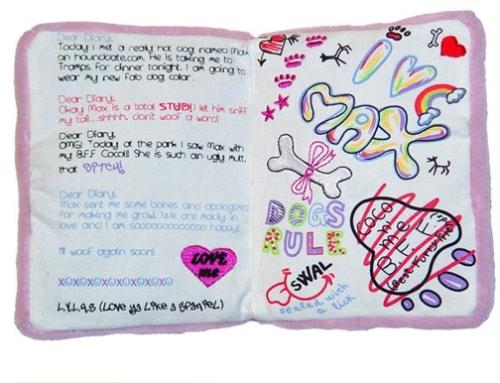 Dear Diary,
Today I met a really hot dog named Max
on hounddate.com. He is taking me to
Tramps for dinner tonight. I am going to
wear my new Fab dog collar...
Dear Diary,
Okay Max is a total STUD! I let him sniff
my tail....shhhh, don't woof a word!
Dear Diary,
OMG! Today at the park I saw Max with
my B.F.F Coco!!! She is such an ugly mutt,
that BITCH!
Dear Diary,
Max sent me some bones and apologized
for making me growl. We are madly
in love and I am soooooooooooo happy!
I'll woof again soon!
LOVE
me
XOXOXOXOXOXOXOXOXO
L.Y.L.A.S (Love ya Like a Spaniel)
I
MAX
DOGS
RULE
COCO
n me
B.F.F
(Best Furry
SWAL
sealed with
a lick